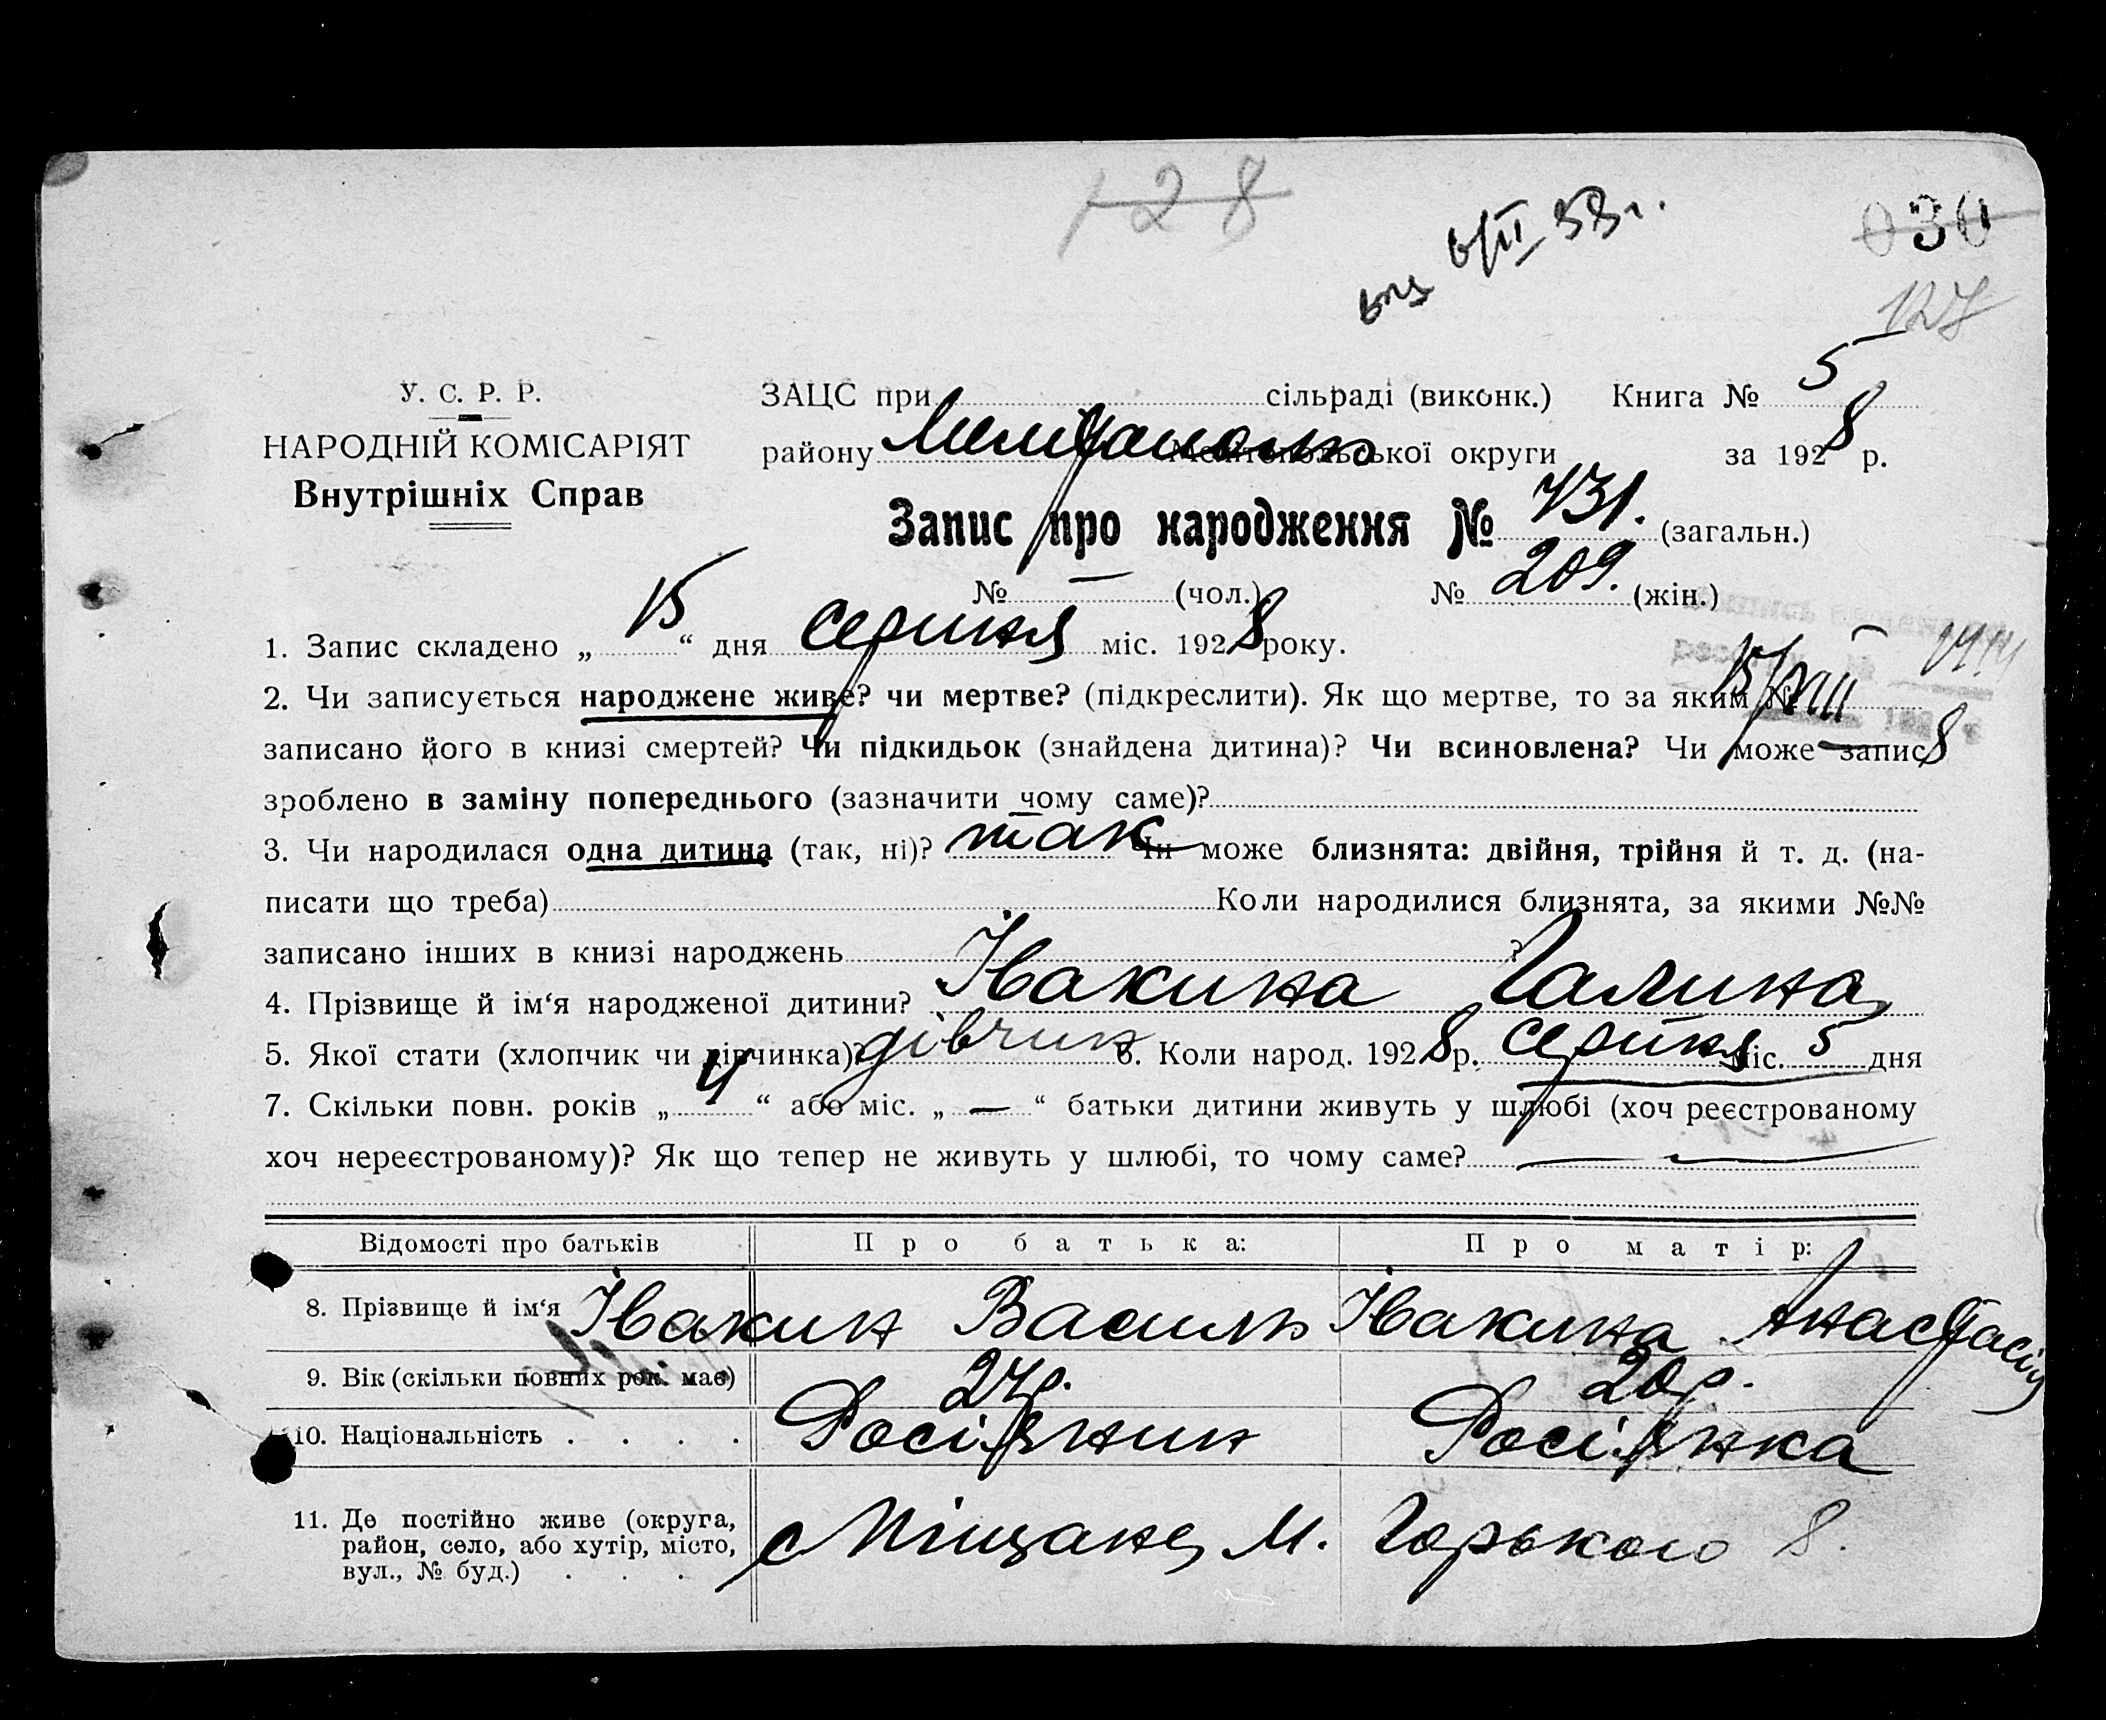 128
030
6/II 53г.
127
У. С. Р. Р.
НАРОДНІЙ КОМІСАРІЯТ
Внутрішніх Справ
ЗАЦС при сільраді (виконк.) Книга № 5
району Мелітополь Мелітопольської округи за 1928 р.
Запис про народження № 431. (загальн.)
№ — (чол.) № 209. (жін.)
1. Запис складено „15“ дня серпня міс. 1928 року.
15/VIII 8
2. Чи записується народжене живе? чи мертве? (підкреслити). Як що мертве, то за яким №
записано його в книзі смертей? Чи підкидьок (знайдена дитина)? Чи всиновлена? Чи може запис
зроблено в заміну попереднього (зазначити чому саме)?
3. Чи народилася одна дитина (так, ні)? так Чи може близнята: двійня, трійня й т. д. (на-
писати що треба) Коли народилися близнята, за якими №№
записано інших в книзі народжень ?
4. Прізвище й ім‘я народженої дитини? Івакина Галина
5. Якої стати (хлопчик чи дівчинка)? дівчин 6. Коли народ. 1928 р. серпня міс. 5 дня
7. Скільки повн. років „4“ або міс. „—“ батьки дитини живуть у шлюбі (хоч реєстрованому
хоч нереєстрованому)? Як що тепер не живуть у шлюбі, то чому саме? —
Відомості про батьків Про батька: Про матір:
8. Прізвище й ім‘я Івакин Василь Івакина Анастасія
9. Вік (скільки повних рок. має) 24р. 20р.
10. Національність . . . . Росіянин Росіянка
11. Де постійно живе (округа,
район, село, або хутір, місто,
вул., № буд.) . . . М. Горького 8.